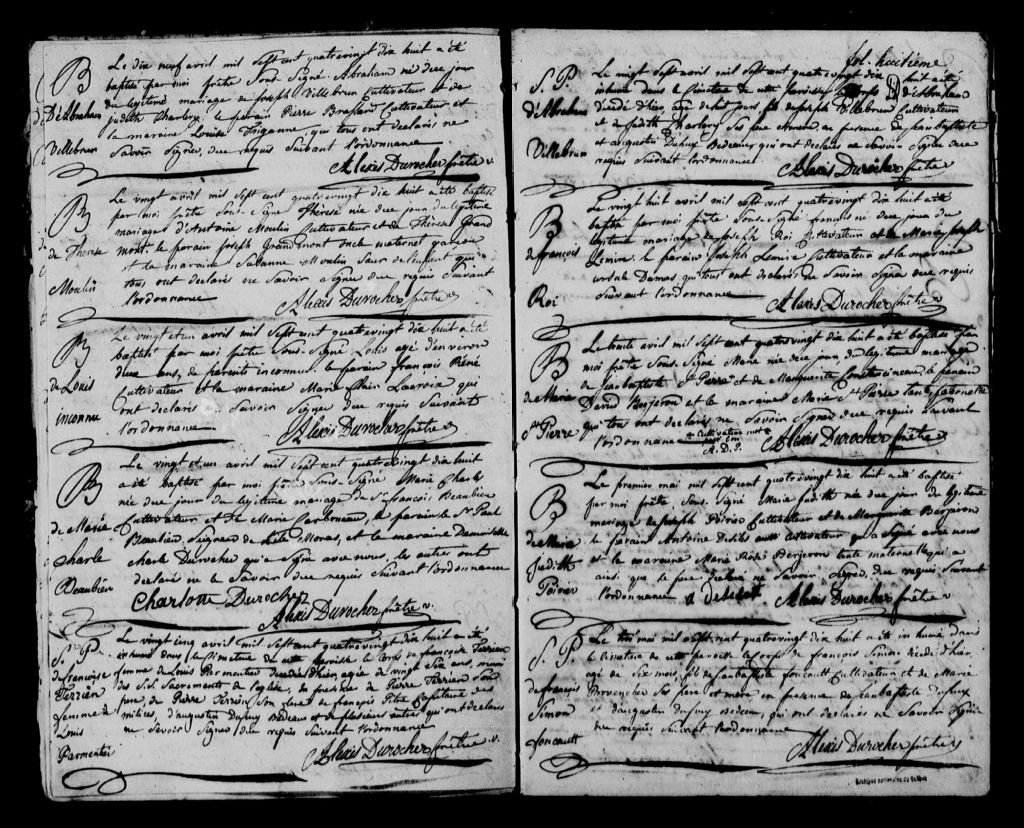 B
D'Abraham
Villebrun
Le dix neuf avril mil Sept cent quatrevingt dix huit a été
baptisé par moi prêtre Sous-Signé Abraham né dece jour
du legitime mariage de joseph Villebrun Cultivateur et de
judith le parain Pierre Cultivateur et
la maraine Louise qui tous ont declarés ne
Savoir Signer, dece requis Suivant l'ordonnance
Alexis Durocher prêtre
B
de Therese
Moulin
Le vingt avril mil Sept cent quatrevingt dix huit a été baptisé
par moi prêtre Sous-Signé Therese née dece jour du legitime
mariage d'Antoine Moulin Cultivateur et de Thérese Grand
mont. le parain joseph Grandmont oncle maternel garcon
et la maraine Suzanne Moulin Sœur de l'enfant qui
tous ont declarés ne Savoir Signer dece requis Suivant
l'ordonnance
Alexis Durocher prêtre
B
de Louis
inconnu
Le vingt et un avril mil Sept cent quatrevingt dix huit a été
baptisé par moi prêtre Sous-Signé Louis agé d'environ
deux ans, de parents inconnus. le parain françois Réné
Cultivateur et la maraine Marie Lacroix qui
ont declarés ne Savoir Signer dece requis Suivant
l'ordonnance
Alexis Durocher prêtre
B
de Marie
Charle
Beaubien
Le vingt et un avril mil Sept cent quatrevingt dix huit
a été baptisé par moi prêtre Sous-Signé Marie Charle
née dece jour du legitime mariage de Sr françois Beaubien
Cultivateur et de Marie le parain le Sr Paul
Beaubien, Seigneur de et la maraine Demoiselle
charle Durocher qui a Signé avec nous, les autres ont
declaré ne le Savoir dece requis Suivant l'ordonnance
Charlotte Durocher
Alexis Durocher prêtre
S. P.
de françoise
Terrien
femme de
Louis
Parmentier
Le vingt cinq avril mil Sept cent quatrevingt dix huit a été
inhumé dans le Cimetiere de cette paroisse le Corps de françoise Terrien
femme de Louis Parmentier decedée d'hier, agée de vingt Six ans, munie
des S.S. Sacrements de l'eglise, en presence de Pierre Terrien Son
pere, de Pierre Terrien Son frere de françois Capitaine de
milices, d'augustin Dupuy Bedeau et de plusieurs autres qui ont declarés
ne Savoir Signer dece requis Suivant l'ordonnance
Alexis Durocher prêtre
fol. huitième
S. P.
d'Abraham
Villebrun
Le vingt Sept avril mil Sept cent quatrevingt dix huit a été
inhumé dans le Cimetiere de cette paroisse le corps d'Abraham
decedé d'hier, agé de huit jours fils de joseph Villebrun Cultivateur
et de judith Ses pere et mere, en presence de jean baptiste
et augustin Dupuy Bedeaux qui ont declarés ne Savoir Signer dece
requis Suivant l'ordonnance
Alexis Durocher prêtre
B
de françois
Roi
Le vingt huit avril mil Sept cent quatrevingt dix huit a été
baptisé par moi prêtre Sous-Signé françois né dece jour du
legitime mariage de joseph Roi Cultivateur et de Marie joseph
Lemire. le parain joseph Lemire Cultivateur et la maraine
ursule Dumas qui tous ont declarés ne Savoir Signer dece requis
Suivant l'ordonnance
Alexis Durocher prêtre
B
de Marie
St. Pierre
Le trente avril mil Sept cent quatrevingt dix huit a été baptisé par
moi prêtre Sous-Signé Marie née dece jour du legitime mariage
de jean baptiste St. Pierre et de Marguerite le parain
David Berjeron et la maraine Marie St. Pierre tante paternelle
qui tous ont declarés ne Savoir Signer dece requis Suivant
l'ordonnance
Cultivateur
A. D. P.
Alexis Durocher prêtre
B
de Marie
judith
Poirier
Le premier mai mil Sept cent quatrevingt dix huit a été baptisé
par moi prêtre Sous-Signé Marie judith née dece jour du legitime
mariage de joseph Poirier Cultivateur et de Marguerite Berjeron
le parain Antoine Cultivateur qui a Signé avec nous
et la maraine Marie Berjeron tante maternelle qui a
ainsi que le pere declaré ne Savoir Signer, dece requis Suivant
l'ordonnance
Alexis Durocher prêtre
S. P.
de françois
Simon
foucault
Le trois mai mil Sept cent quatrevingt dix huit a été inhumé dans
le Cimetiere de cette paroisse le corps de françois Simon decedé d'hier
agé de Six mois, fils de jean baptiste foucault Cultivateur et de Marie
Provencher Ses pere et mere en presence de jean baptiste Dupuy
et d'augustin Dupuy Bedeau, qui ont declarés ne Savoir Signer
dece requis Suivant l'ordonnance
Alexis Durocher prêtre
Archives nationales du Québec